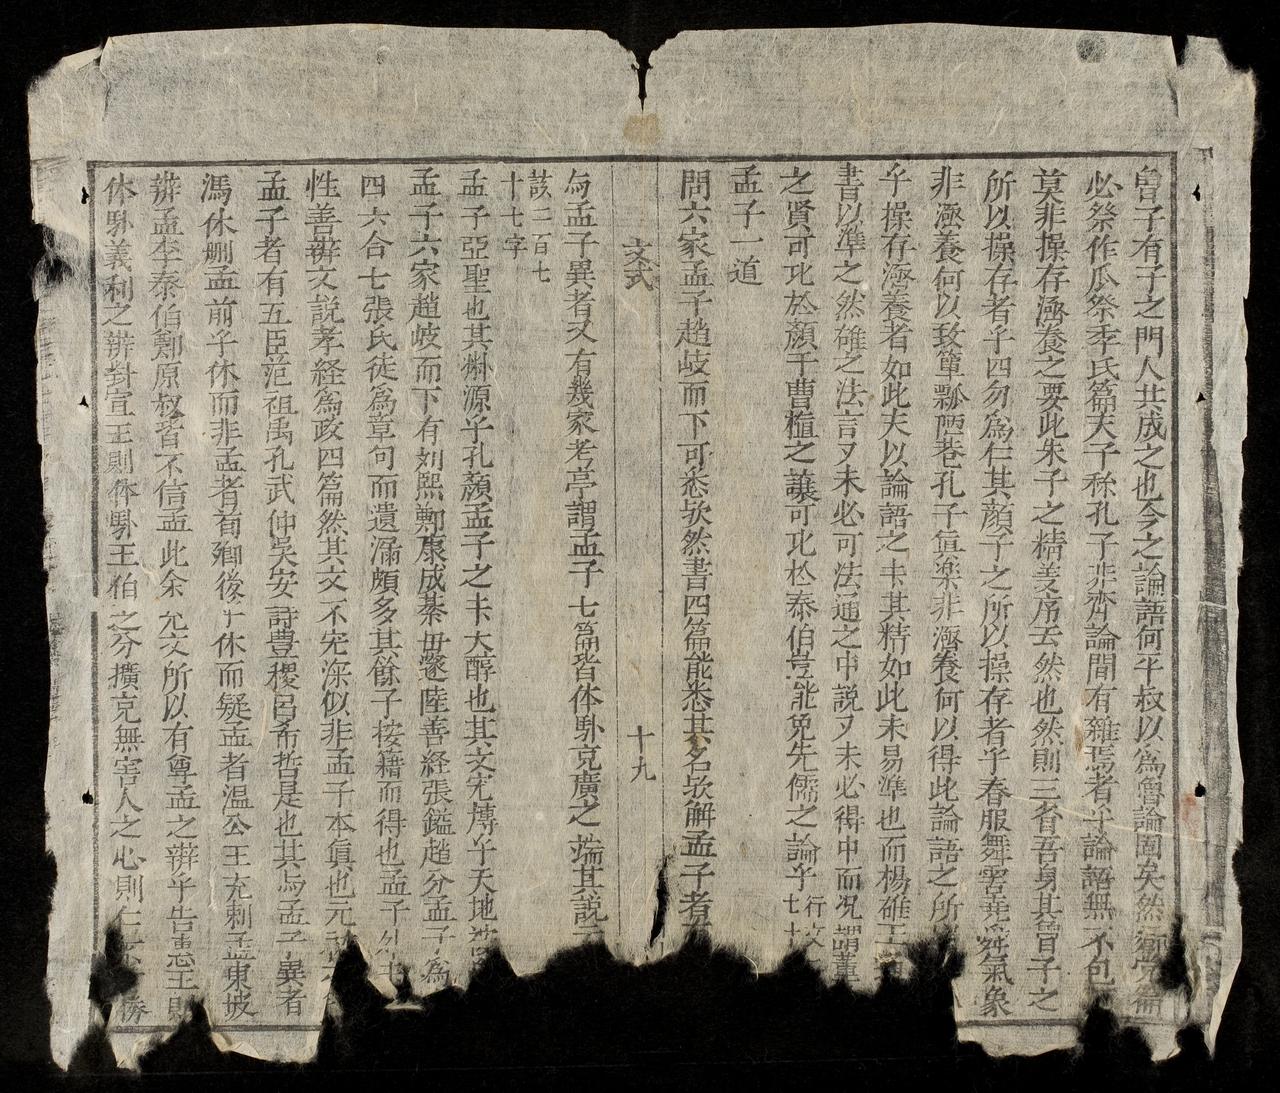 曾子有子之門人共成之也今之論語何平叔以爲魯論固矣然鄉党篇
必祭作瓜祭季氏篇夫子称孔子非齊論間有雜焉者乎論語無不包
莫非操存涵養之要此朱子之精義序云然也然則三省吾身其曾子之
所以操存者乎四勿爲仁其顔子之所以操存者乎春服舞雩尭舜氣象
非涵養何以致簞瓢陋巷孔子眞楽非涵養何以得此論語之所
乎操存涵養者如此夫以論語之书其精如此未易準也而楊雄王
書以準之然雄之法言又未必可法通之中説又未必得中而况謂董
之賢可比於顔子曹植之譲可比於泰伯豈能免先儒之論乎
孟子一道
問六家孟子趙岐而下可悉欤然書四篇能悉其名欤解孟子者
文式
十九
与孟子異者又有幾家考亭謂孟子七篇皆体驗充廣之端其説
該二百七
十七字
孟子亞聖也其淵源乎孔顔孟子之书大醇也其文宏博乎天地
孟子六家趙岐而下有刘熙鄭康成綦毋邃陸善経張鎰趙分孟子爲
四六合七張氏徒爲章句而遺漏頗多其餘子按籍而得也孟子外书
性善辨文説孝経爲政四篇然其文不宏深似非孟子本眞也元
孟子者有五臣范祖禹孔武仲吳安詩豊稷呂希哲是也其与孟子異者
馮休刪孟前乎休而非孟者荀卿後乎休而疑孟者温公王充刺孟東坡
辨孟李泰伯鄭原叔皆不信孟此余允文所以有尊孟之辨乎告惠王則
体驗義利之辨對宣王則体驗王伯之分擴充無害人之心則仁